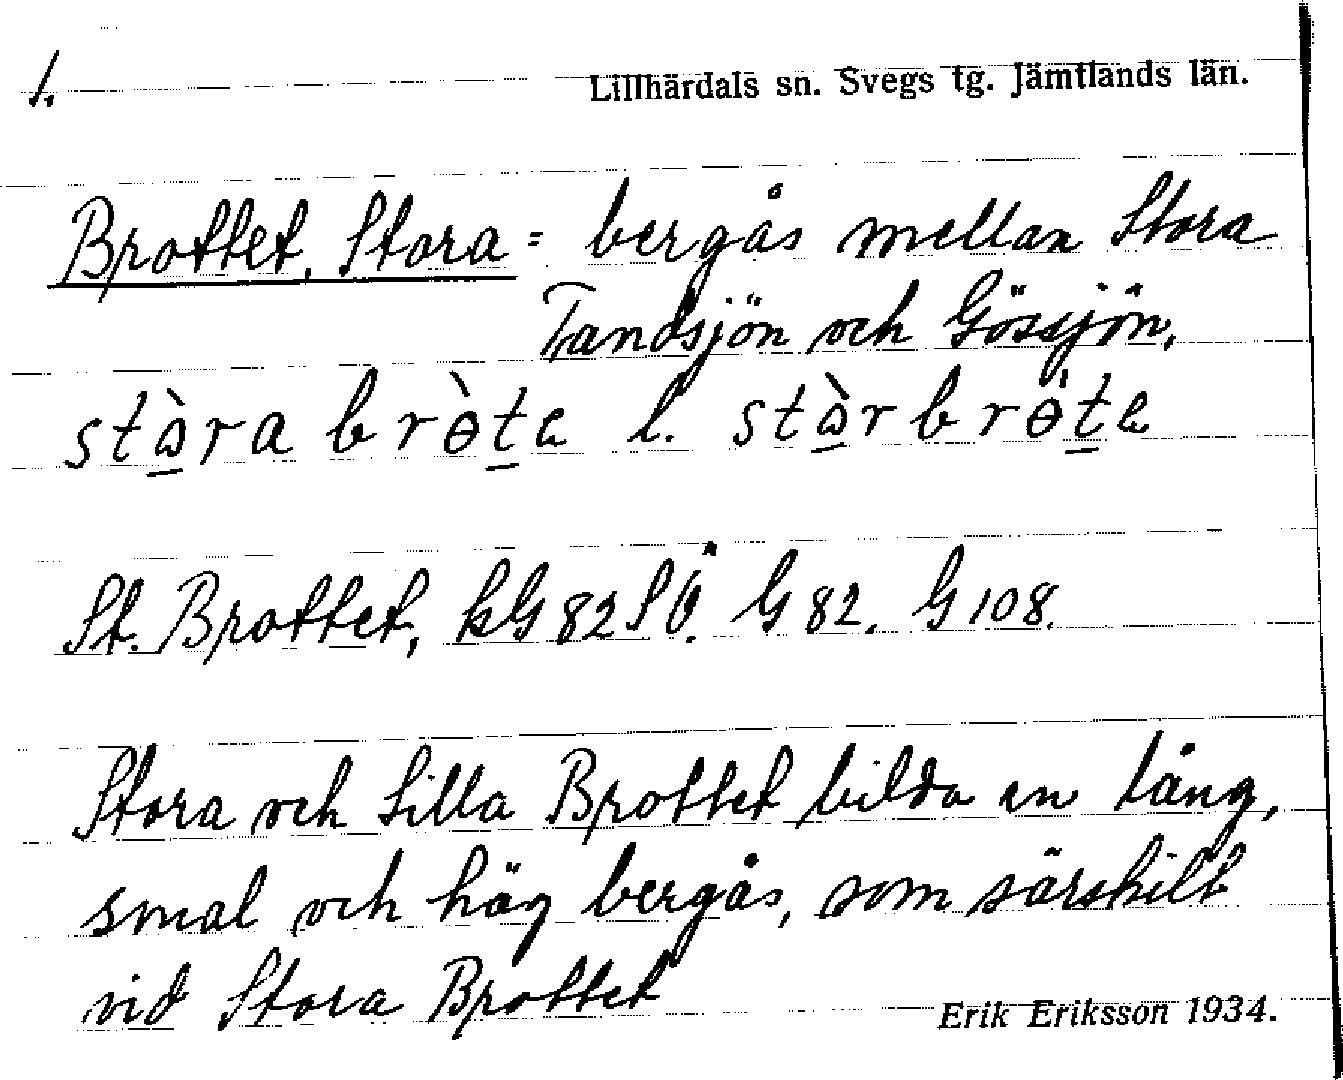 1.
Lillhärdals sn. Svegs tg. Jämtlands län.
Brottet, Stora = bergås mellan Stora
Tandsjön och Gössjön,
stɷ̀ra brɵ̀te l. stɷ̀rbrɵ̀te
St. Brottet, kG 82 SÖ. G 82. G 108.
Stora och Lilla Brottet bilda en lång,
smal och hög bergås, som särskilt
vid Stora Brottet
Erik Eriksson 1934.